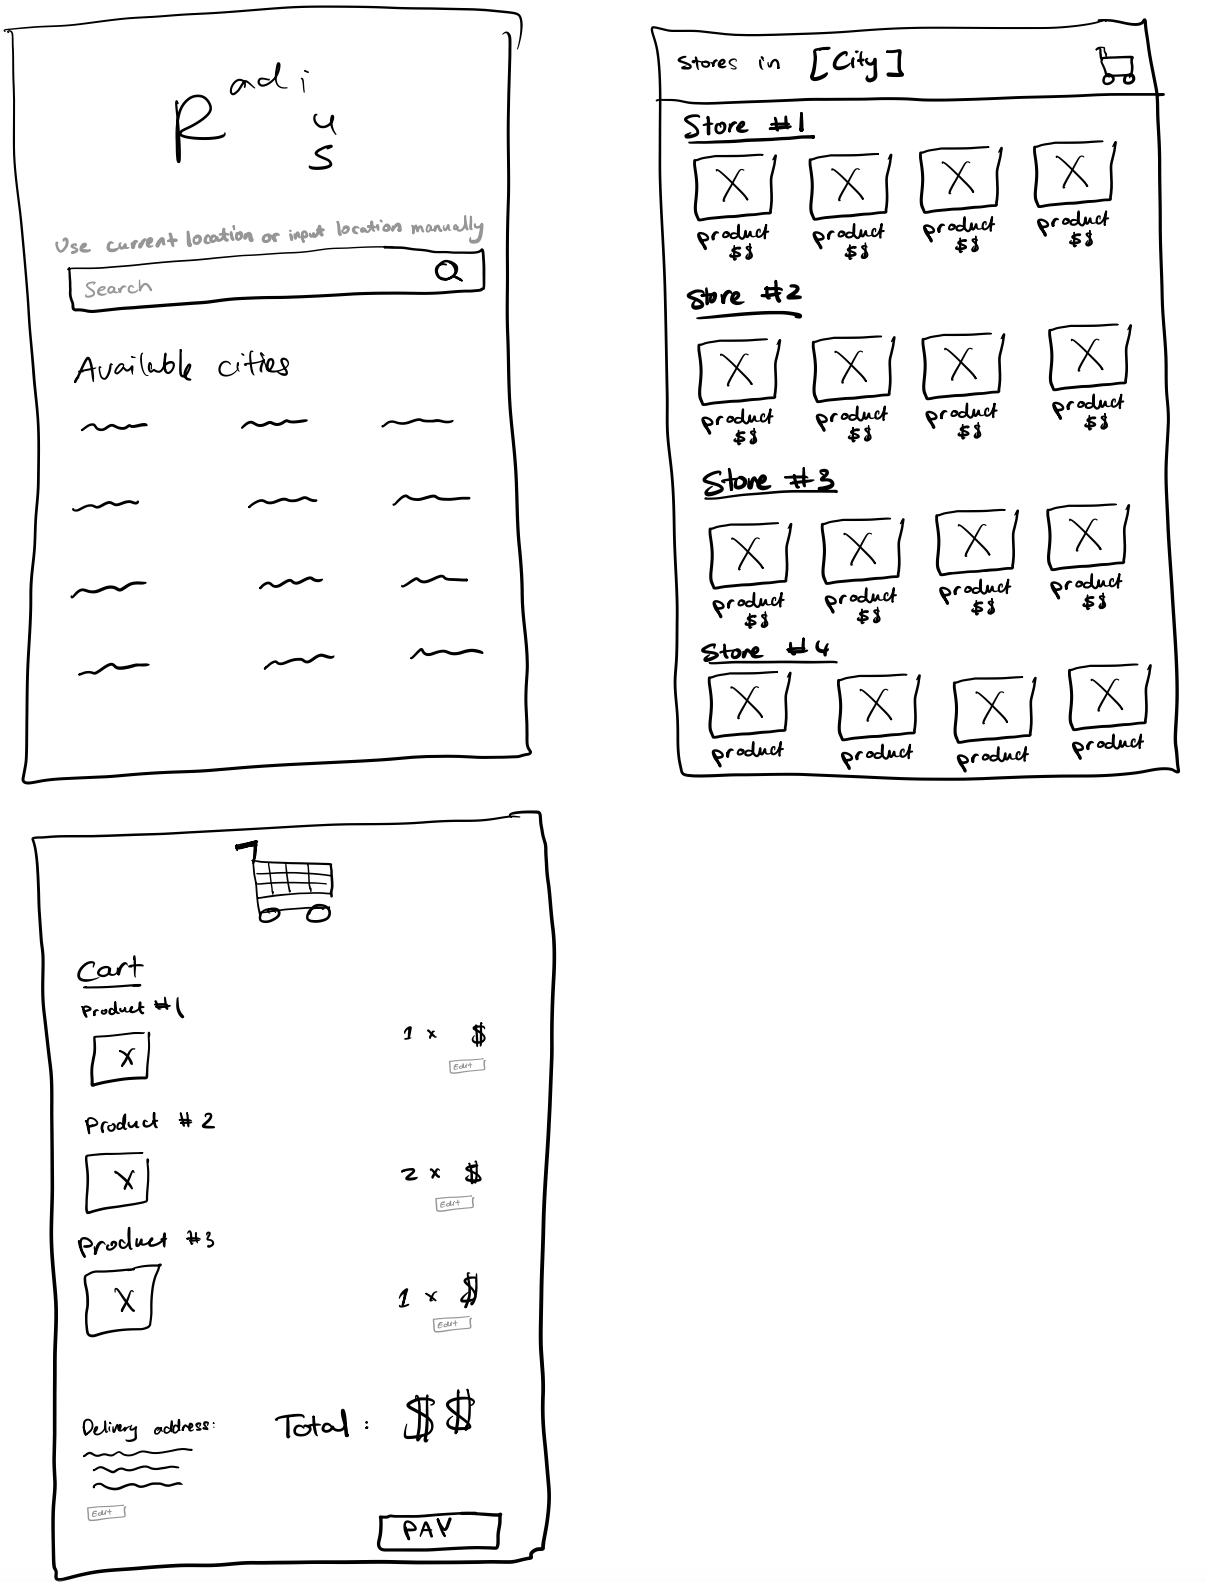 Radius
Use current location or input location manually
Search
Available cities
Stores in [City]
Store #1
product product product product
$$ $$ $$ $$
Store #2
product product product product
$$ $$ $$ $$
Store #3
product product product product
$$ $$ $$ $$
Store #4
product product product product
Cart
Product #1
1 x $
Edit
Product #2
2 x $
Edit
Product #3
1 x $
Edit
Delivery address: Total: $$
Edit
PAY